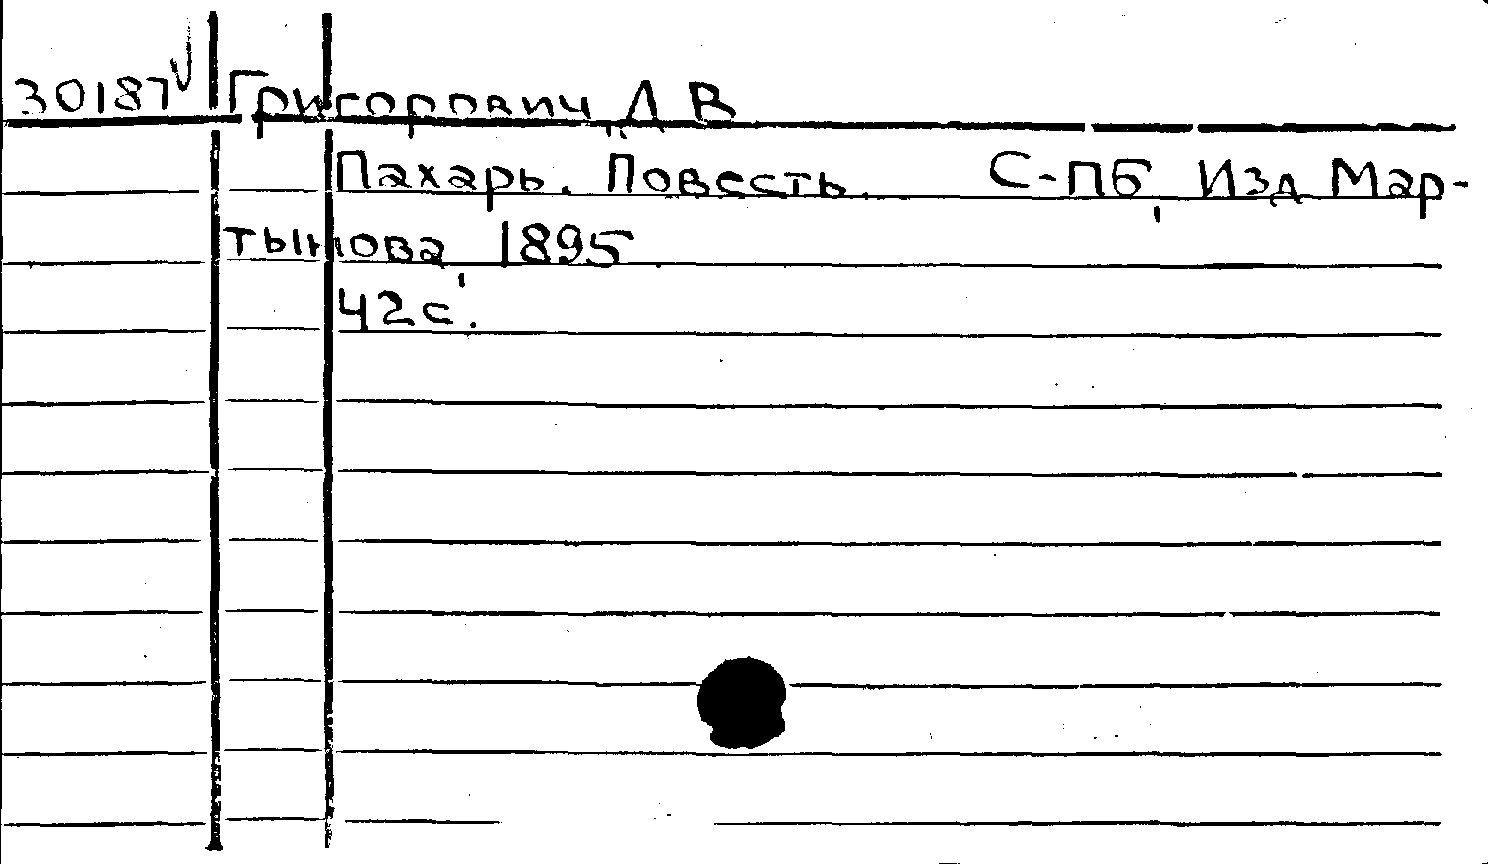 30187 Григорович, Д В
Пахарь. Повесть. С-ПБ, Изд Мар-
тынова, 1895
42 с.